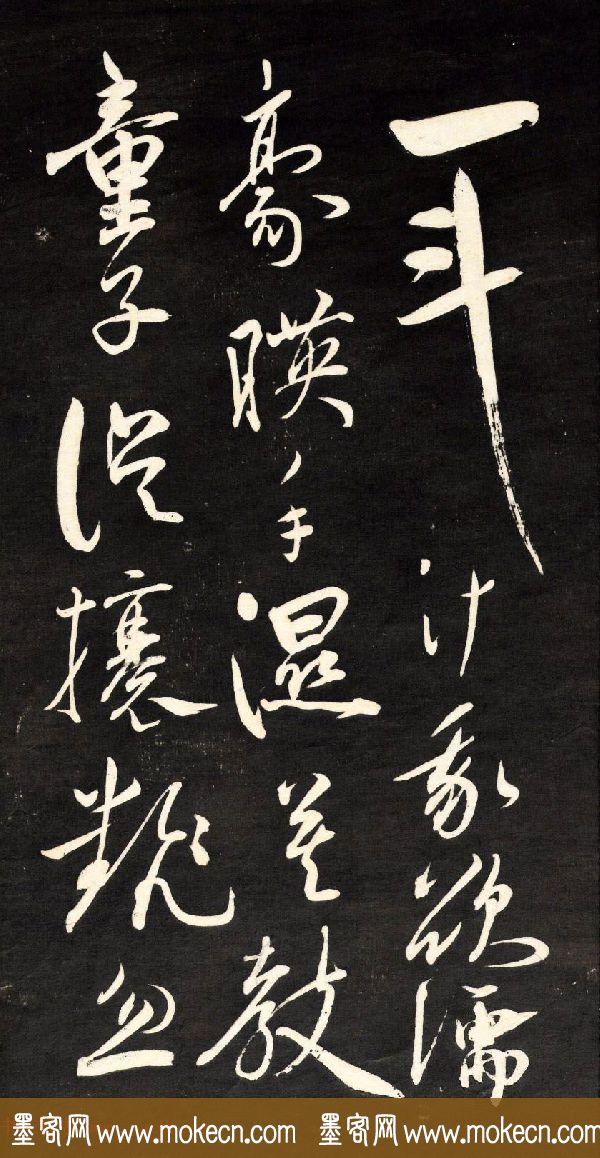 一斗汁我欲濡
豪暎手濕莫教
童子從攘觀忽
墨客网 www.mokecn.com 墨客网 www.mokecn.com